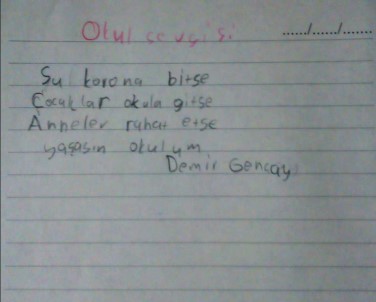 Okul sevgisi ....../....../......
Su korona bitse
Çocuklar okula gitse
Anneler rahat etse
yaşasın okulum
Demir Gencay